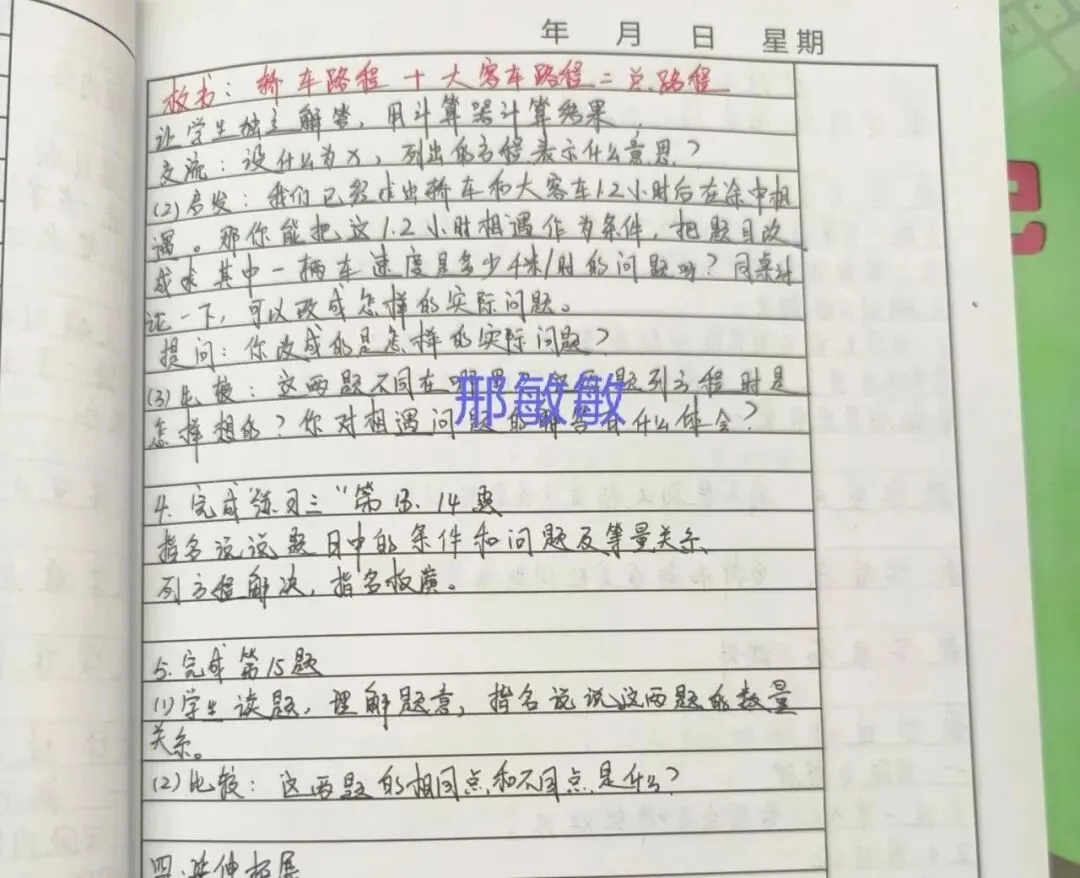 年 月 日 星期
板书：轿车路程＋大客车路程＝总路程
让学生独立解答，用计算器计算结果
交流：设什么为x，列出的方程表示什么意思？
(2)启发：我们已经求出轿车和大客车1.2小时后在途中相
遇。那你能把这1.2小时相遇作为条件，把题目改
成求其中一辆车速度是多少千米/时的问题吗？同桌讨
论一下，可以改成怎样的实际问题。
提问：你改成的是怎样的实际问题？
(3)比较：这两题不同在 两题列方程时是
邢敏敏
怎样想的？你对相遇问题的解答有什么体会？
4.完成"练习三"第13、14题
指名说说题目中的条件和问题及等量关系
列方程解决，指名板演。
5.完成第15题
(1)学生读题，理解题意，指名说说这两题的数量
关系。
(2)比较：这两题的相同点和不同点是什么？
四.延伸拓展